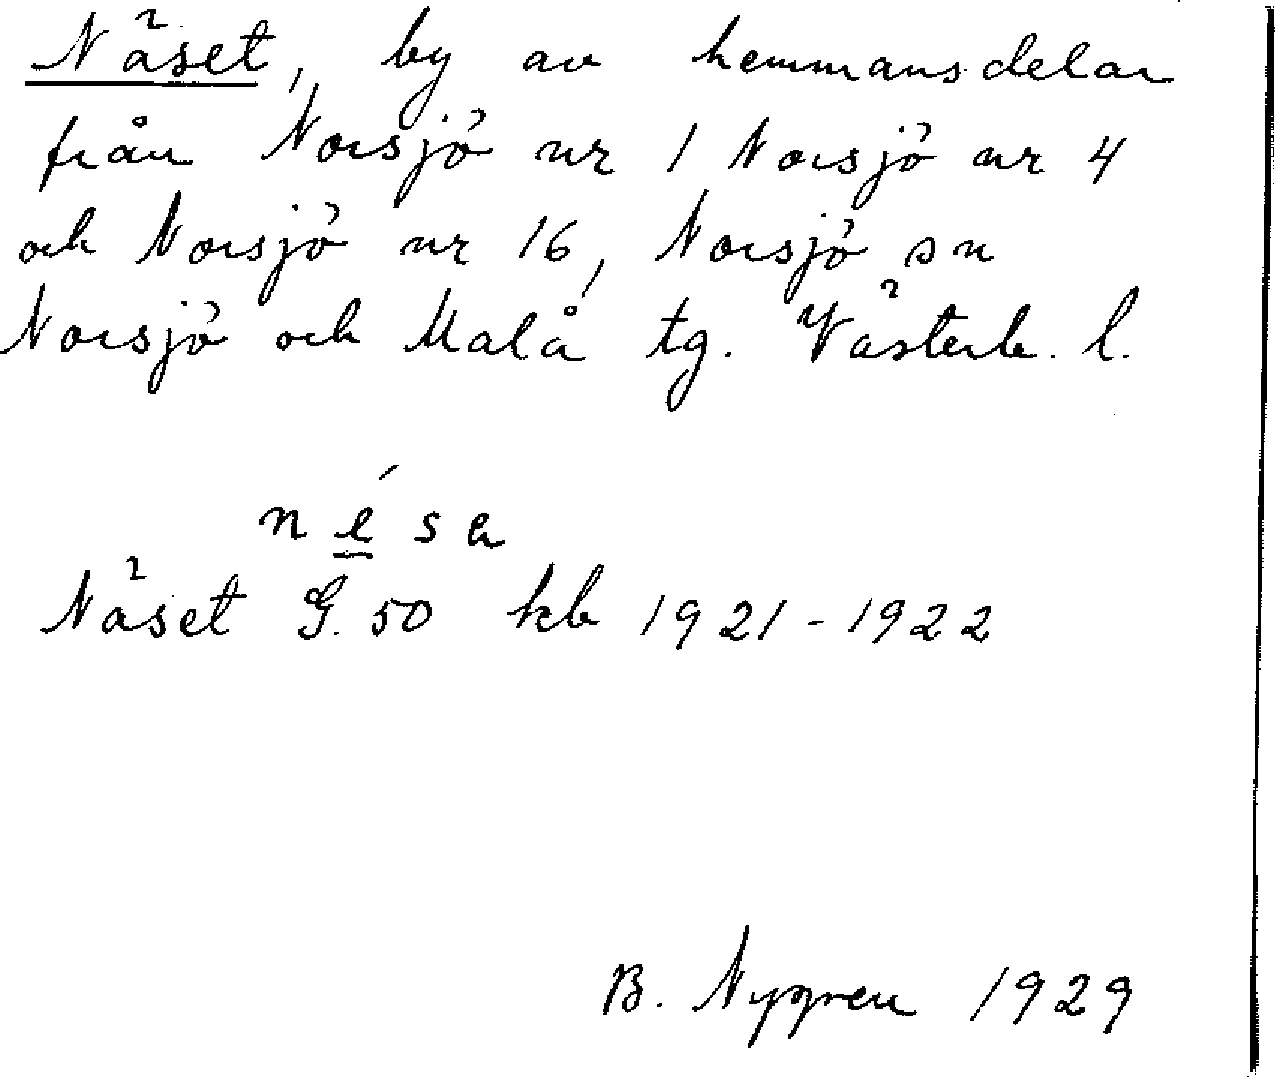 Näset, by av hemmansdelar
från Norsjö nr 1 Norsjö nr 4
och Norsjö nr 16, Norsjö sn
Norsjö och Malå tg. Västerb. l.
né̳sa
Näset G. 50 kb 1921-1922
B. Nygren 1929